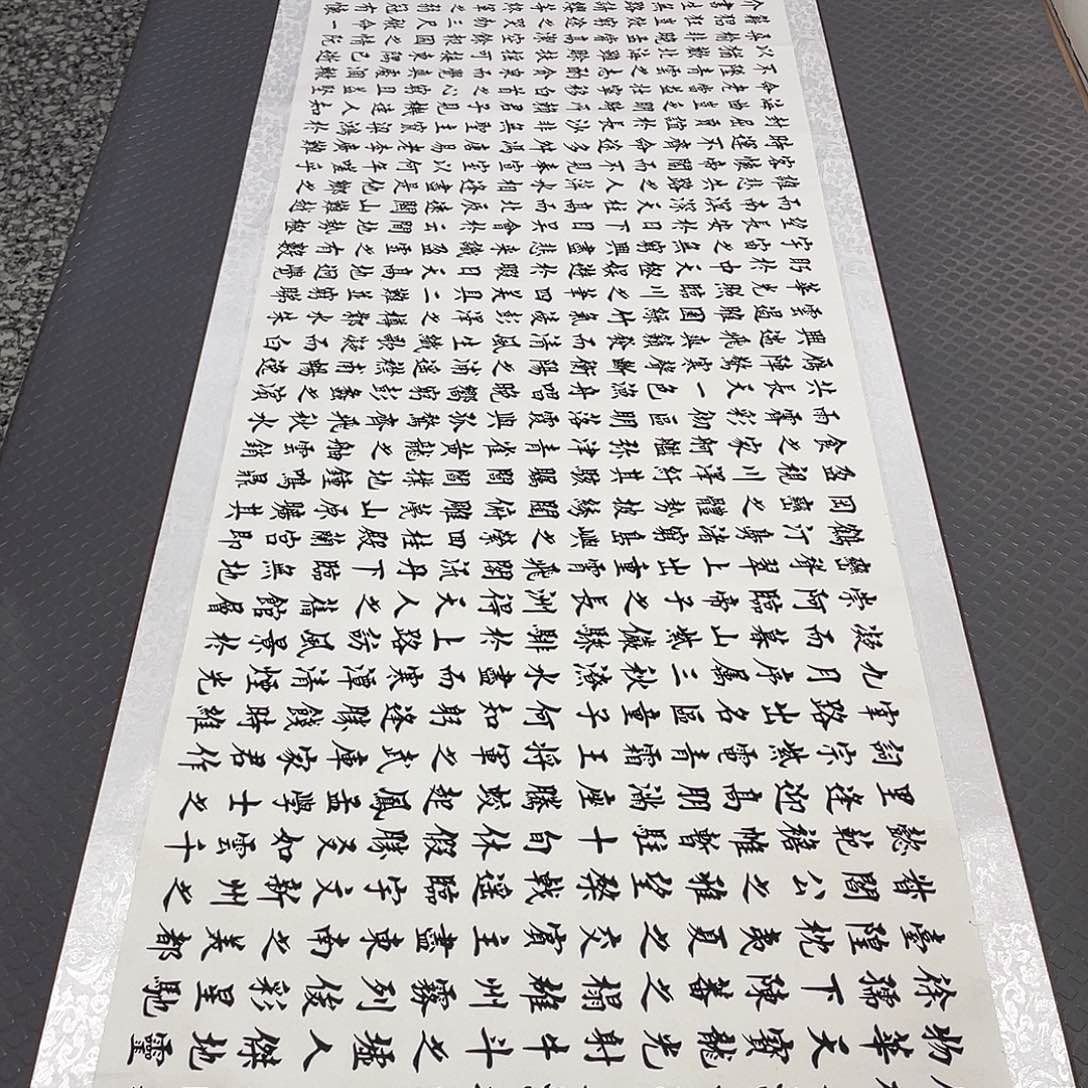 物華天寶龍光射牛斗之墟人傑地靈
徐孺下陳蕃之榻雄州霧列俊彩星馳
臺隍枕夷夏之交賓主盡東南之美都
督閻公之雅望棨戟遙臨宇文新州之
懿範襜帷暫駐十旬休假勝友如雲千
里逢迎高朋滿座騰蛟起鳳孟學士之
詞宗紫電青霜王將軍之武庫家君作
宰路出名區童子何知躬逢勝餞時維
九月序屬三秋潦水盡而寒潭清煙光
凝而暮山紫儼驂騑於上路訪風景於
崇阿臨帝子之長洲得天人之舊館層
巒聳翠上出重霄飛閣流丹下臨無地
鶴汀鳧渚窮島嶼之縈回桂殿蘭宮即
岡巒之體勢披繡闥俯雕甍山原曠其
盈視川澤紆其駭矚閭閻撲地鐘鳴鼎
食之家舸艦彌津青雀黃龍之舳雲銷
雨霽彩徹區明落霞與孤鶩齊飛秋水
共長天一色漁舟唱晚響窮彭蠡之濱
雁陣驚寒聲斷衡陽之浦遙襟甫暢逸
興遄飛爽籟發而清風生纖歌凝而白
雲遏睢園綠竹氣凌彭澤之樽鄴水朱
華光照臨川之筆四美具二難並窮睇
眄於中天極娛遊於暇日天高地迥覺
宇宙之無窮興盡悲來識盈虛之有數
望長安於日下目吳會於雲間地勢極
而南溟深天柱高而北辰遠關山難越
誰悲失路之人萍水相逢盡是他鄉之
客懷帝閽而不見奉宣室以何年嗟乎
時運不齊命途多舛馮唐易老李廣難
封屈賈誼於長沙非無聖主竄梁鴻於
海曲豈乏明時所賴君子見機達人知
命老當益壯寧移白首之心窮且益堅
不墜青雲之志酌貪泉而覺爽處涸轍
以猶歡北海雖賒扶搖可接東隅已逝
桑榆非晚孟嘗高潔空餘報國之情阮
籍猖狂豈效窮途之哭勃三尺微命一